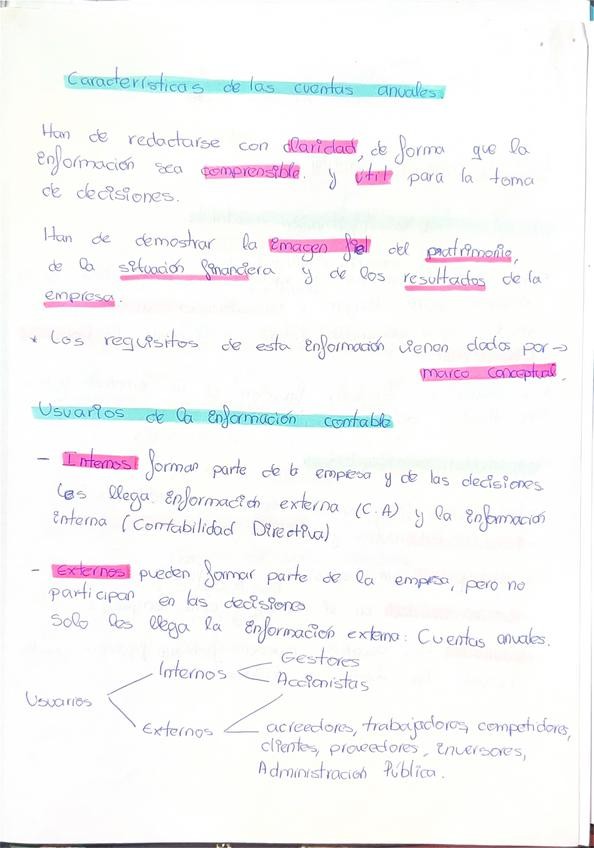 Características de las cuentas anuales.
Han de redactarse con claridad, de forma que la
información sea comprensible. y útil para la toma
de decisiones.
Han de demostrar la imagen fiel del patrimonio,
de la situación financiera y de los resultados de la
empresa.
* Los requisitos de esta información vienen dados por →
marco conceptual.
Usuarios de la información contable
- Internos: forman parte de la empresa y de las decisiones
Les llega información externa (C.A) y la información
interna (Contabilidad Directiva)
- Externos pueden formar parte de la empresa, pero no
participan en las decisiones
Solo les llega la información externa: Cuentas anuales.
Gestores
Internos
Accionistas
Usuarios
Externos
acreedores, trabajadores, competidores,
clientes, proveedores, inversores,
Administración Pública.